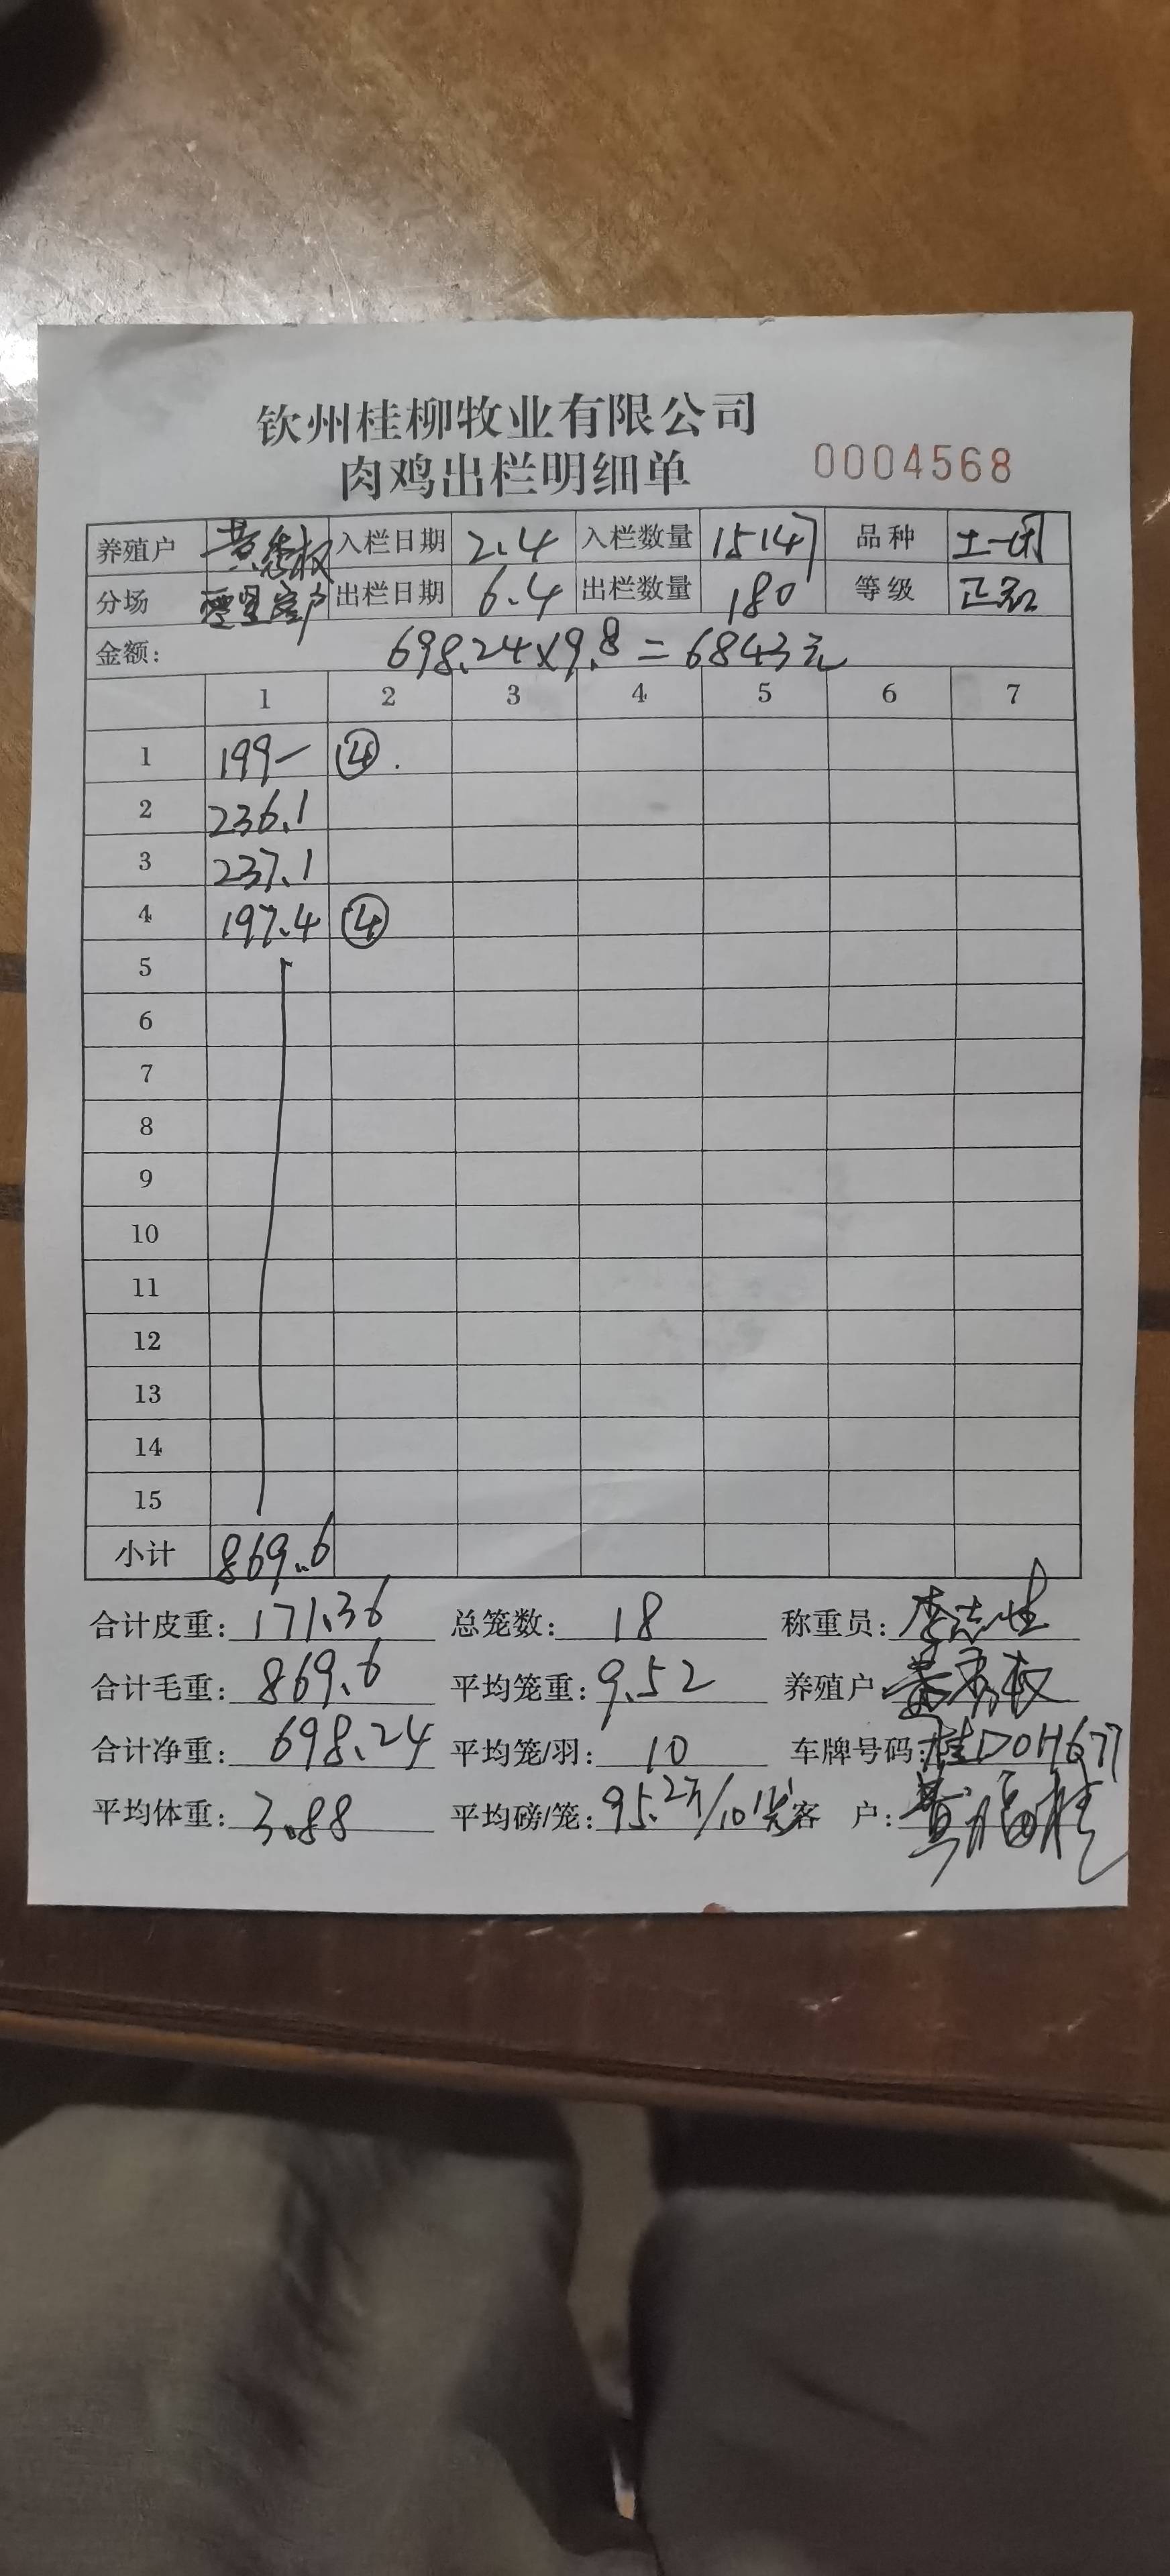 钦州桂柳牧业有限公司
肉鸡出栏明细单 0004568
养殖户 黄秀权 入栏日期 2.4 入栏数量 15147 品种 土一
分场 客户 出栏日期 6.4 出栏数量 180 等级 正
金额: 698.24×9.8=6843元
1 2 3 4 5 6 7
1 199- ④.
2 236.1
3 237.1
4 197.4 ④
5
6
7
8
9
10
11
12
13
14
15
小计 869.6
合计皮重: 171.36 总笼数: 18 称重员: 李志
合计毛重: 869.6 平均笼重: 9.52 养殖户: 黄秀权
合计净重: 698.24 平均笼/羽: 10 车牌号码: 桂D0H677
平均体重: 3.88 平均磅/笼: 95.2斤/10 客 户: 黄福桂